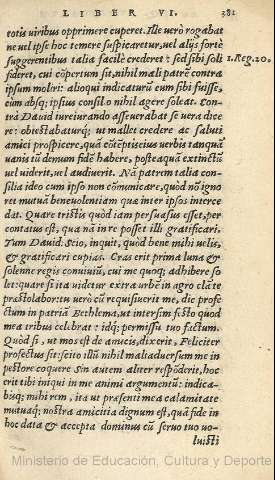 LIBER VI. 381
totis viribus opprimere cuperet. Ille verò rogabat
ne vel ipse hoc temere suspicaretur, vel alijs fortè
suggerentibus talia facilè crederet: sed sibi soli
fideret, cui cōpertum sit, nihil mali patrē contra
ipsum moliri: alioqui indicaturū eum sibi fuisse,
cum absq; ipsius consilio nihil agere soleat. Con
tra Dauid iureiurando asseuerabat se vera dice
re: obtestabaturq; ut mallet credere ac saluti
amici prospicere, quā cōtēptis eius verbis tanquā
vanis tū demum fidē habere, posteaquā extinctū
vel viderit, vel audiuerit. Nā patrem talia con-
silia ideo cum ipso non cōmunicare, quod nō igno
ret mutuā beneuolentiam quæ inter ipsos interce
dat. Quare tristis quòd iam persuasus esset, per
contatus est, qua nā in re posset illi gratificari.
Tum Dauid. Scio, inquit, quòd bene mihi velis,
& gratificari cupias. Cras erit prima luna &
solemne regis conuiuiū, cui me quoq; adhibere so
let: quare si ita videtur extra urbē in agro clā te
præstolabor: tu verò cū requisiuerit me, dic profe
ctum in patriā Bethlema, ut intersim festo quod
mea tribus celebrat: idq; permissu tuo factum.
Quòd si, ut mos est de amicis, dixerit, Feliciter
profectus sit: scito illū nihil mali aduersum me in
pectore coquere Sin autem aliter respōderit, hoc
erit tibi iniqui in me animi argumentū: indica-
bisq; mihi rem, ita ut præsenti mea calamitate
mutuaq; nostra amicitia dignum est, quā fide in
hoc data & accepta dominus cū seruo tuo vo-
luisti
1. Reg. 20.
Ministerio de Educación, Cultura y Deporte